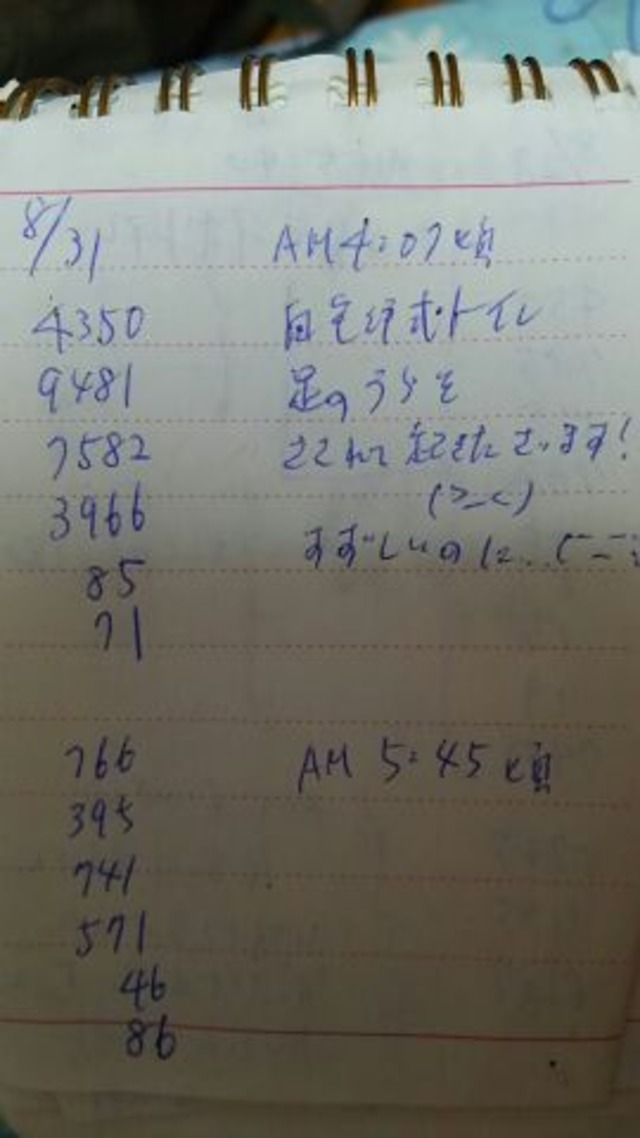 8/31 AM4:07頃
4350 自宅洋式トイレ
9481 足のうらを
7582 ささわて起きたさっます!
3966 (>_<)
すずしいのに..(ーー;
85
71
766 AM 5:45頃
395
741
571
46
86